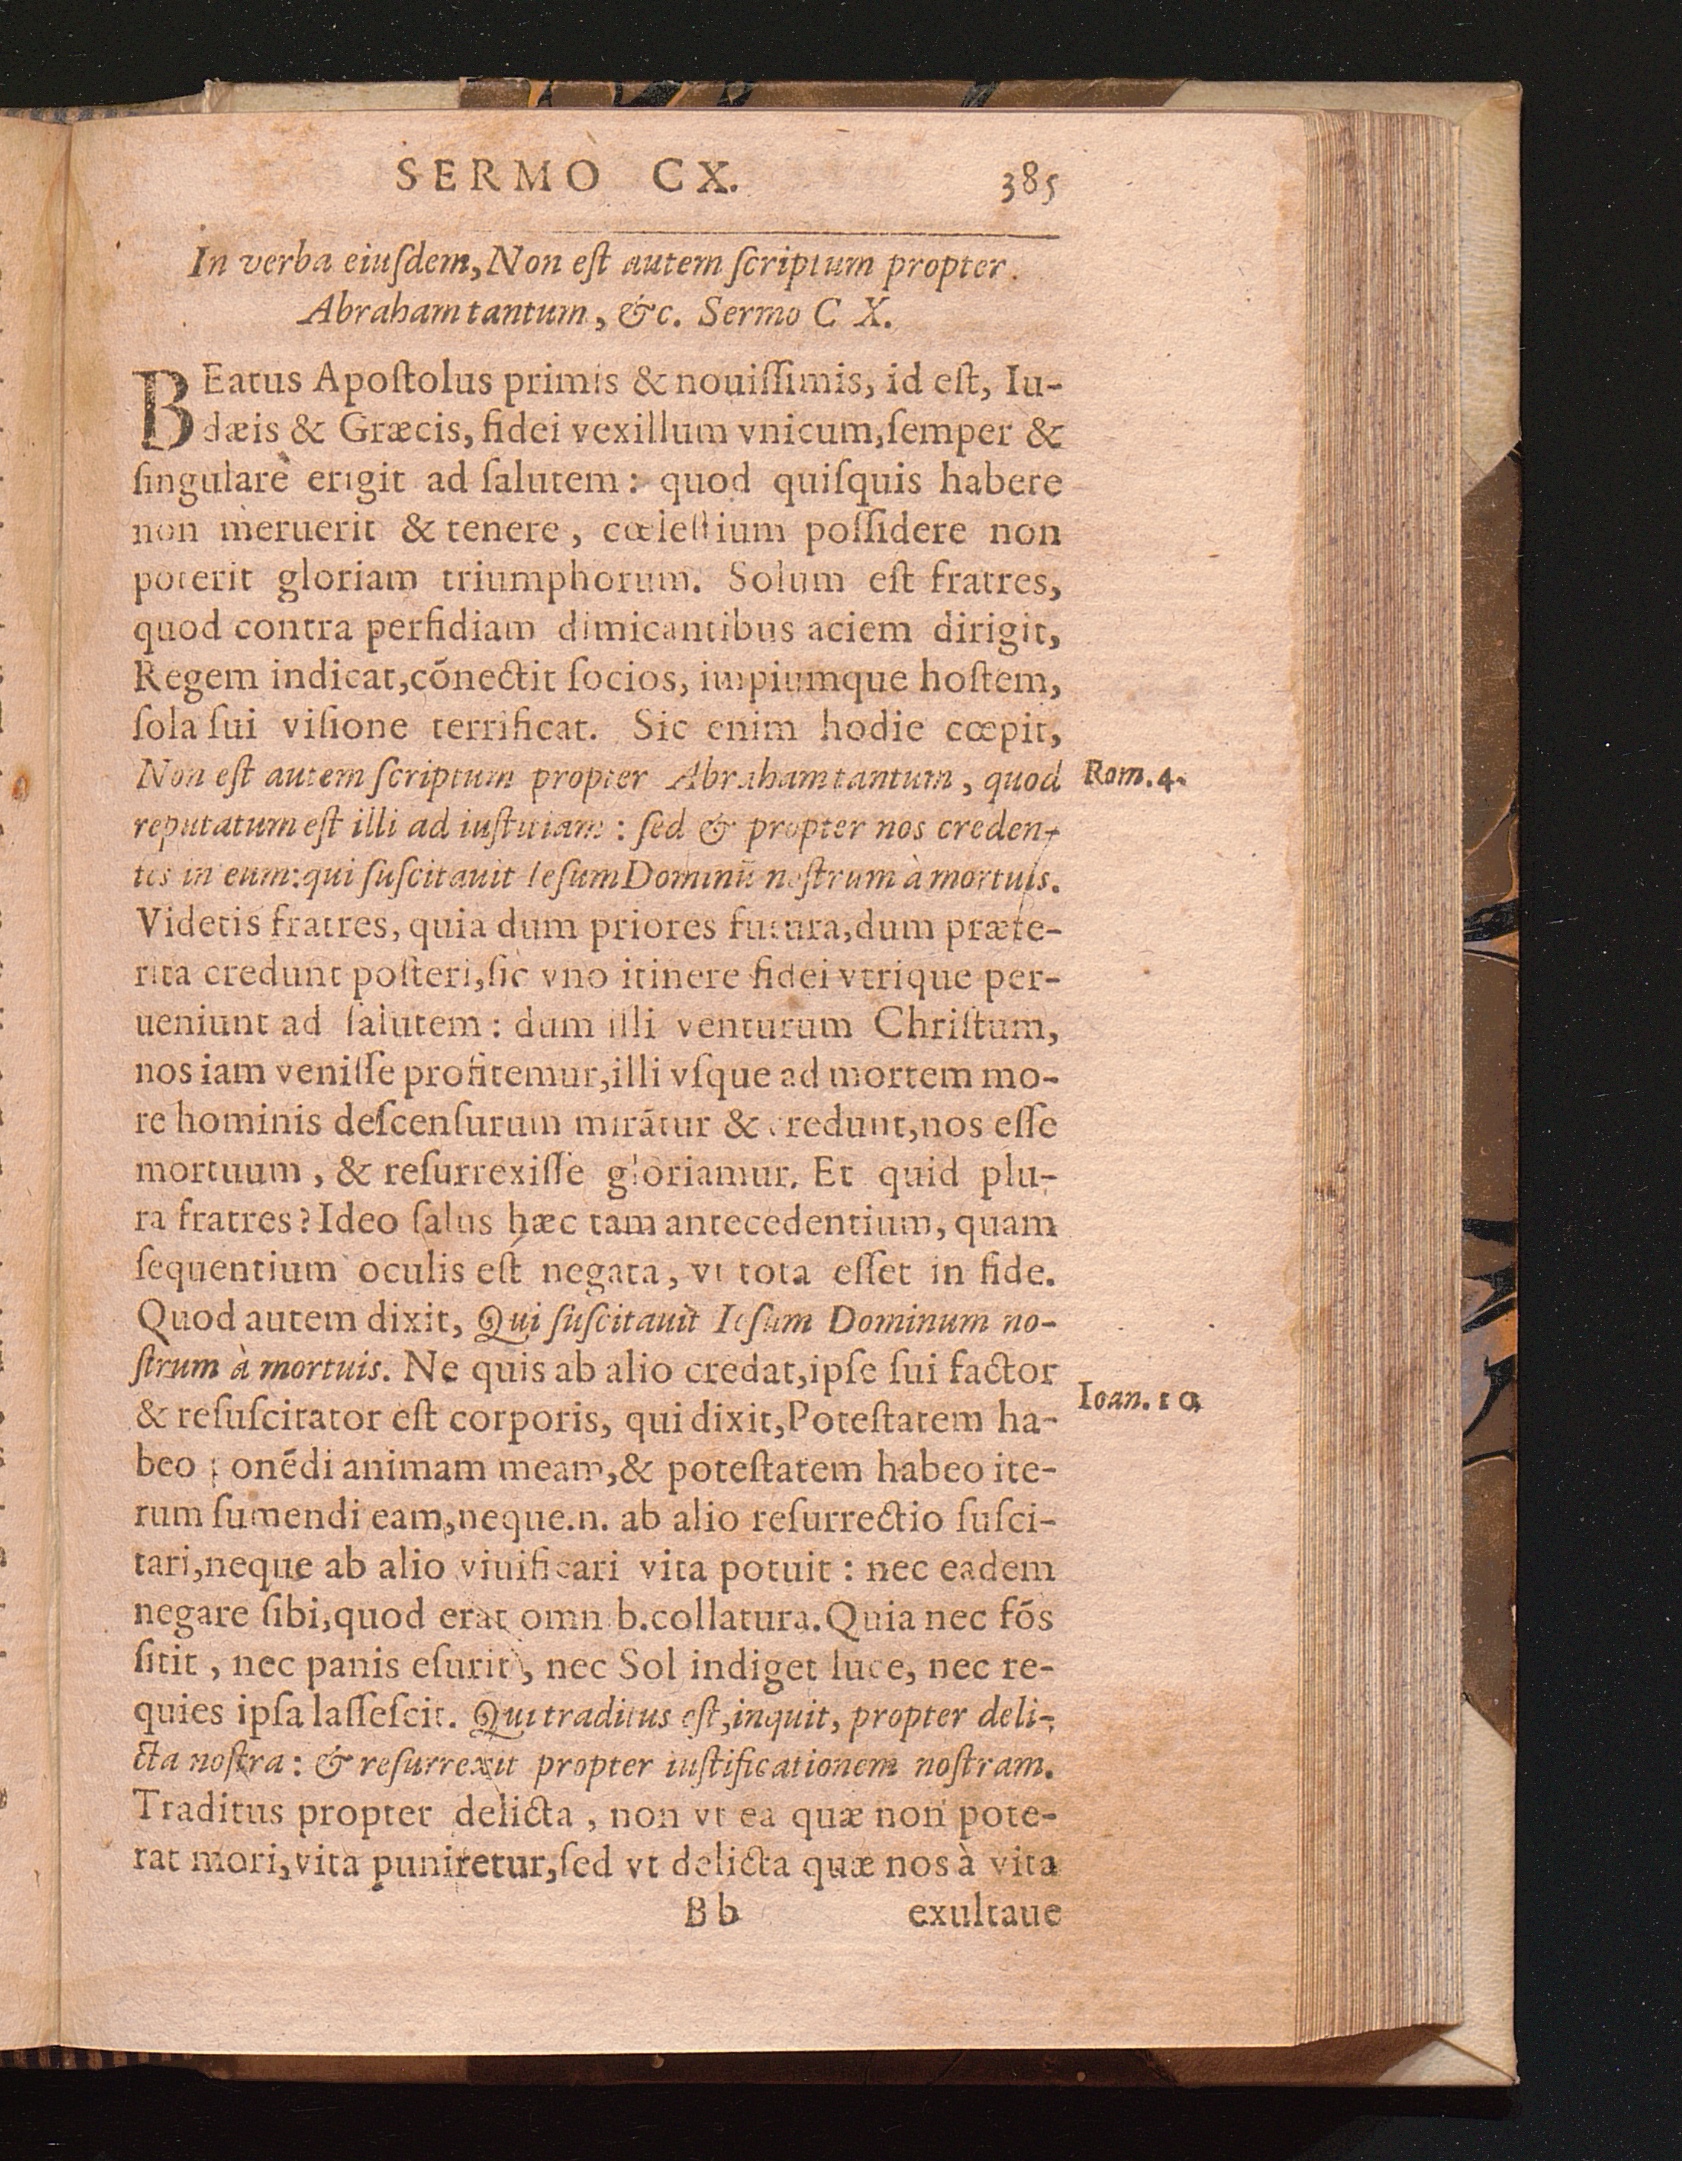 SERMO CX. 385
In verba eiuſdem, Non eſt autem ſcriptum propter
Abraham tantum, &c. Sermo C X.
BEatus Apoſtolus primis & nouiſſimis, id eſt, Iu-
dæis & Græcis, fidei vexillum vnicum, ſemper &
ſingulare erigit ad ſalutem: quod quiſquis habere
non meruerit & tenere, cœleſtium poſſidere non
poterit gloriam triumphorum. Solum eſt fratres,
quod contra perfidiam dimicantibus aciem dirigit,
Regem indicat, cōnectit ſocios, impiumque hoſtem,
ſola ſui viſione terrificat. Sic enim hodie cœpit,
Non eſt autem ſcriptum propter Abraham tantum, quod
Rom. 4.
reputatum eſt illi ad iuſtitiam: ſed & propter nos creden-
tes in eum: qui ſuſcitauit Ieſum Dominū noſtrum à mortuis.
Videtis fratres, quia dum priores futura, dum præte-
rita credunt poſteri, ſic vno itinere fidei vtrique per-
ueniunt ad ſalutem: dum illi venturum Chriſtum,
nos iam veniſſe profitemur, illi vſque ad mortem mo-
re hominis deſcenſurum mirātur & credunt, nos eſſe
mortuum, & reſurrexiſſe gloriamur. Et quid plu-
ra fratres? Ideo ſalus hæc tam antecedentium, quam
ſequentium oculis eſt negata, vt tota eſſet in fide.
Quod autem dixit, Qui ſuſcitauit Ieſum Dominum no-
ſtrum à mortuis. Ne quis ab alio credat, ipſe ſui factor
& reſuſcitator eſt corporis, qui dixit, Poteſtatem ha-
Ioan. 10.
beo ponēdi animam meam, & poteſtatem habeo ite-
rum ſumendi eam, neque.n. ab alio reſurrectio ſuſci-
tari, neque ab alio viuificari vita potuit: nec eadem
negare ſibi, quod erat omnib. collatura. Quia nec fōs
ſitit, nec panis eſurit, nec Sol indiget luce, nec re-
quies ipſa laſſeſcit. Qui traditus eſt, inquit, propter deli-
cta noſtra: & reſurrexit propter iuſtificationem noſtram.
Traditus propter delicta, non vt ea quæ non pote-
rat mori, vita puniretur, ſed vt delicta quæ nos à vita
Bb exultaue